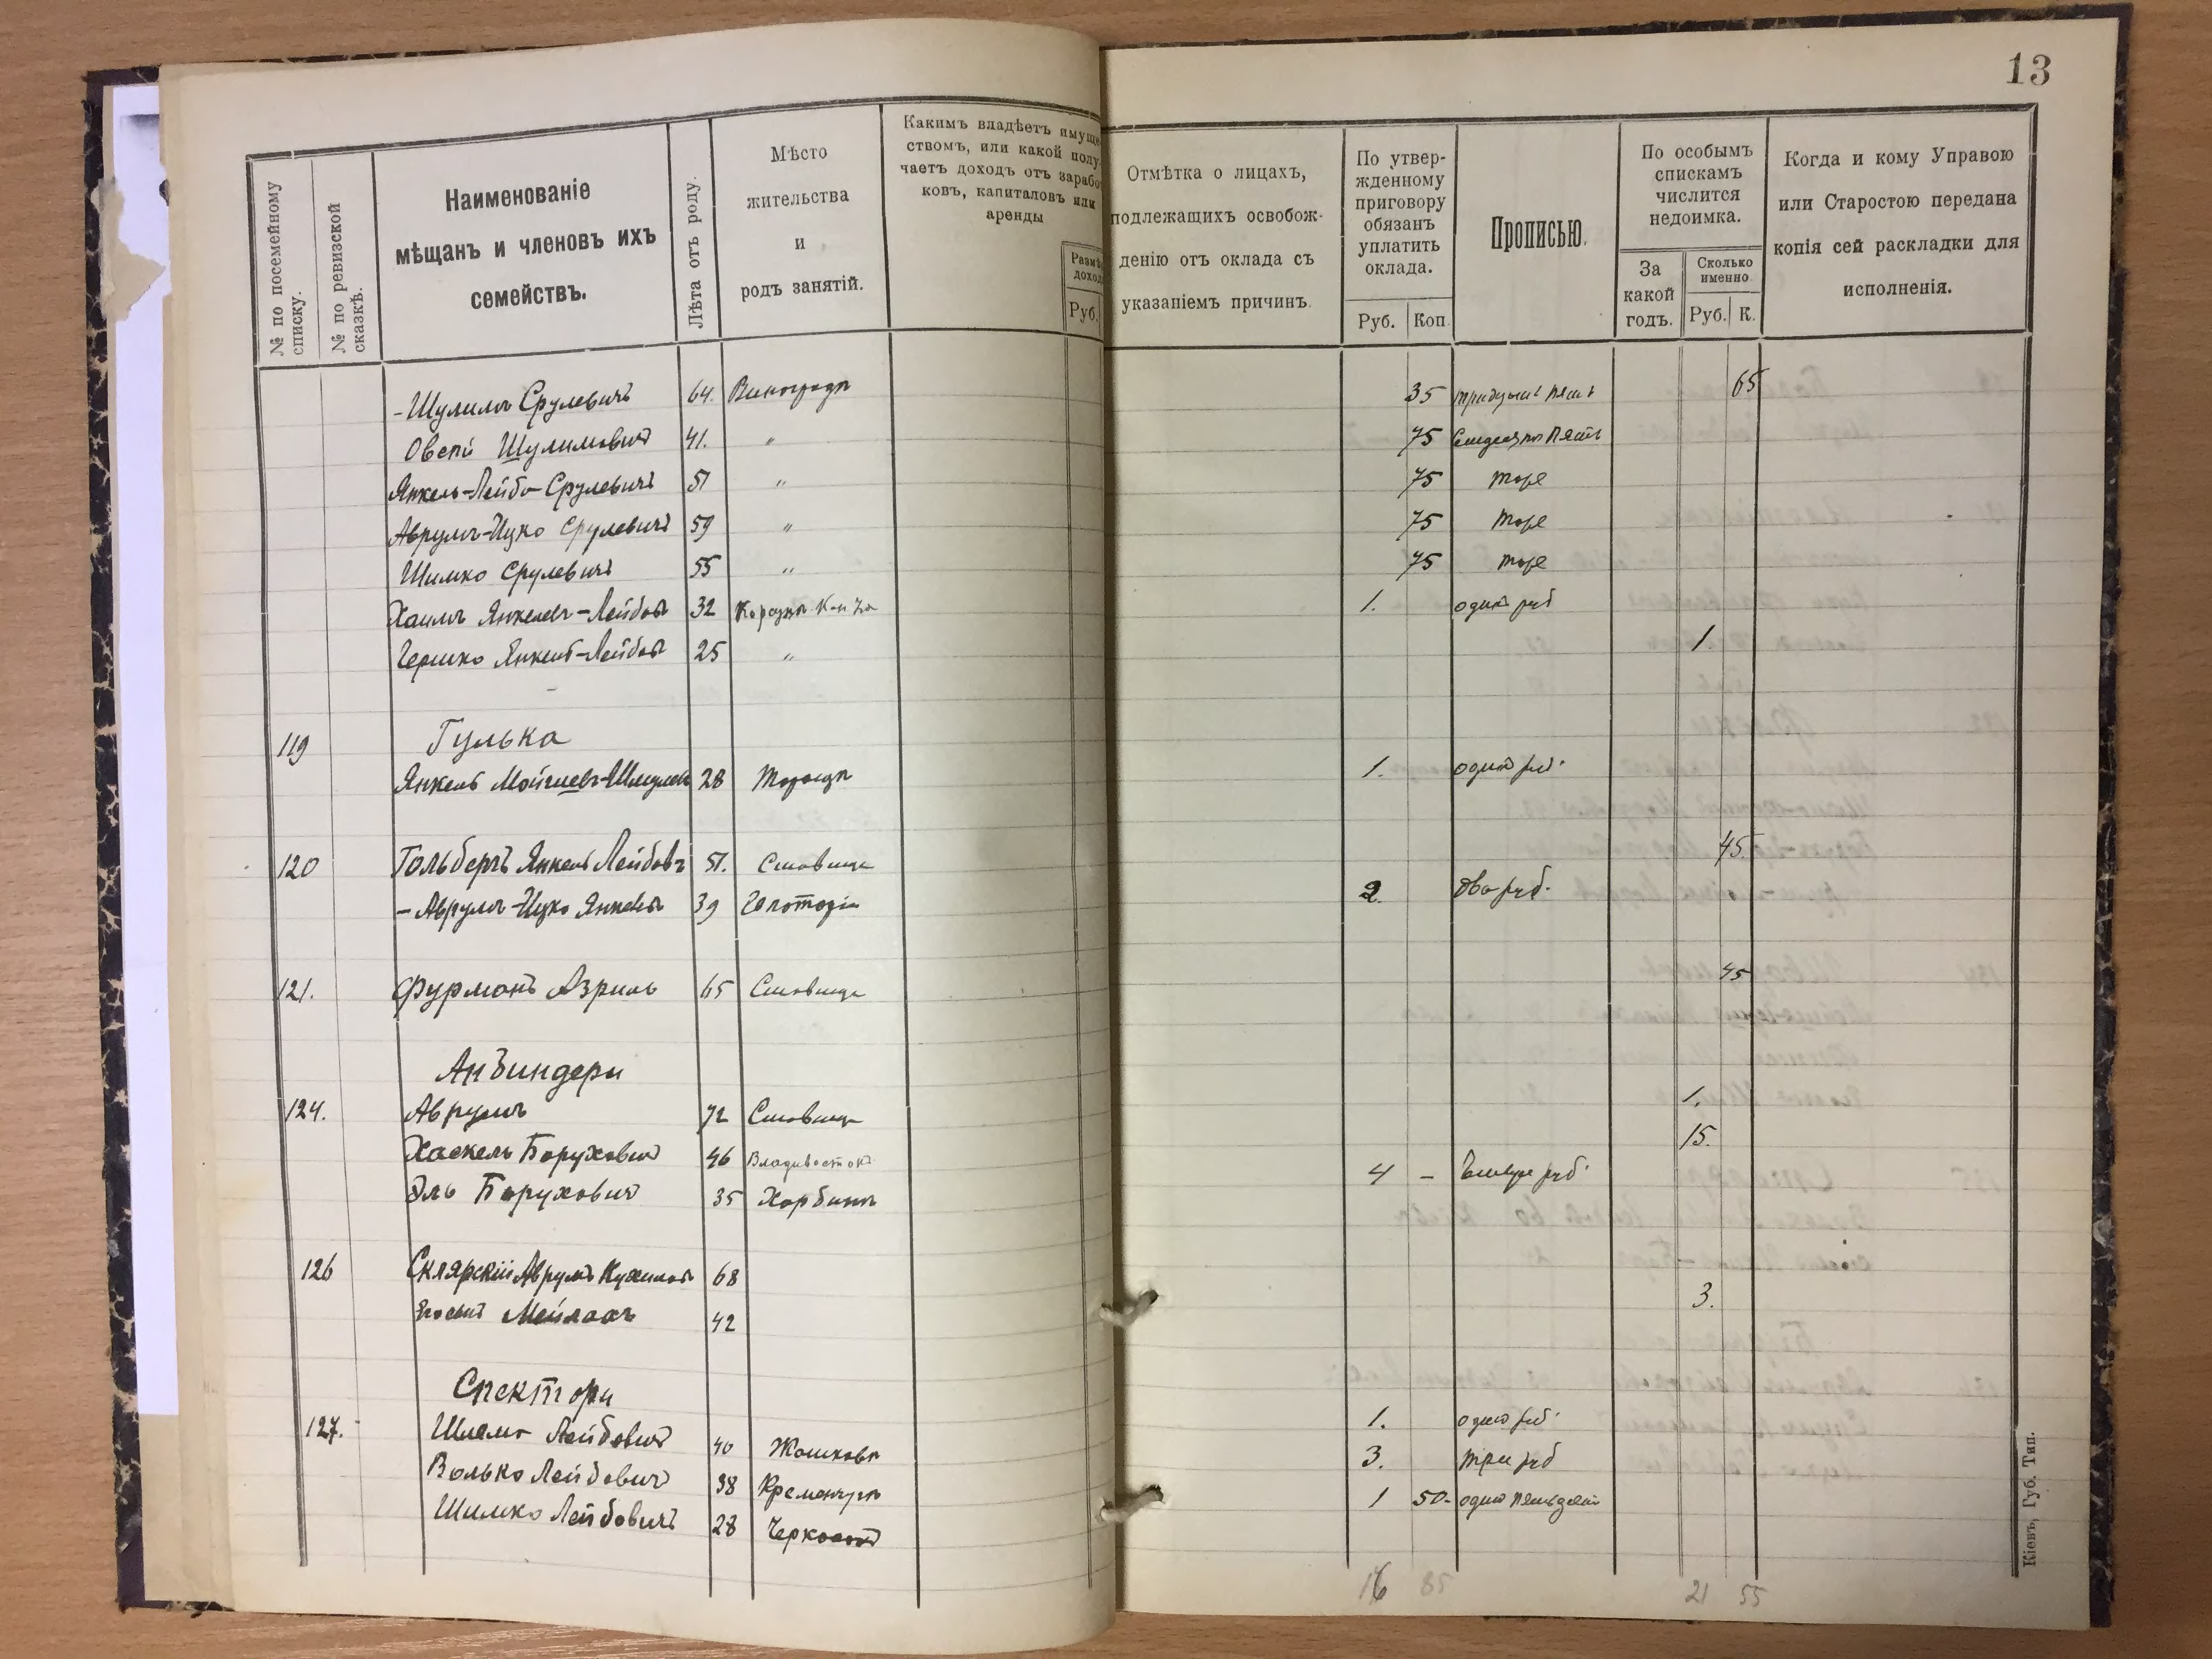 13
№ по посемейному списку.
№ по ревизской сказкѣ.
Наименованіе
мѣщанъ и членовъ ихъ
семействъ.
Лѣта отъ роду.
Мѣсто
жительства
и
родъ занятій.
Какимъ владѣетъ имуще
ствомъ, или какой полу
чаетъ доходъ отъ зарабо
ковъ, капиталовъ или
аренды
Размѣ
доход
Руб.
Отмѣтка о лицахъ,
подлежащихъ освобож-
денію отъ оклада съ
указаніемъ причинъ.
По утвер-
жденному
приговору
обязанъ
уплатить
оклада.
Руб. Коп
Прописью.
По особымъ
спискамъ
числится
недоимка.
За
какой
годъ.
Сколько
именно.
Руб. К.
Когда и кому Управою
или Старостою передана
копія сей раскладки для
исполненія.
-Шулимъ Срулевичъ 64. Виноградъ 35 тридцать пять 65
Овсей Шулимовичъ 41. " 75 Семдесять Пять
Янкель-Лейбо-Срулевичъ 51 " 75 тоже
Аврумъ-Ицко Срулевичъ 59 " 75 тоже
Шимко Срулевичъ 55 " 75 тоже
Хаимъ Янкелев-Лейбов 32 Корсунь 1. один руб
Гершко Янкел-Лейбов 25 " 1.
119 Гулька
Янкель Мойшев-Шмулев 28 1. один руб.
120 Гольбергъ Янкель Лейбовъ 51. Ставище 45.
-Аврумъ-Ицко Янкелев 39 2. два руб.
121. Фурманъ Азриль 65 Ставище 45
Анбиндери
124. Аврумъ 72 Ставище 1.
Хаскель Борухович 46 Владивостокъ 15.
Эль Борухович 35 Харбинъ 4 - четыре руб.
126 Склярскій Аврумъ 68
Мейлахъ 42 3.
Спектори
127. Шлема Лейбович 40 Жашковъ 1. один руб.
Волько Лейбович 38 Кременчугъ 3. три руб
Шимко Лейбовичъ 28 Черкассы 1 50- один пятьдесят
16 85 21 55
Кіевъ, Губ. Тип.